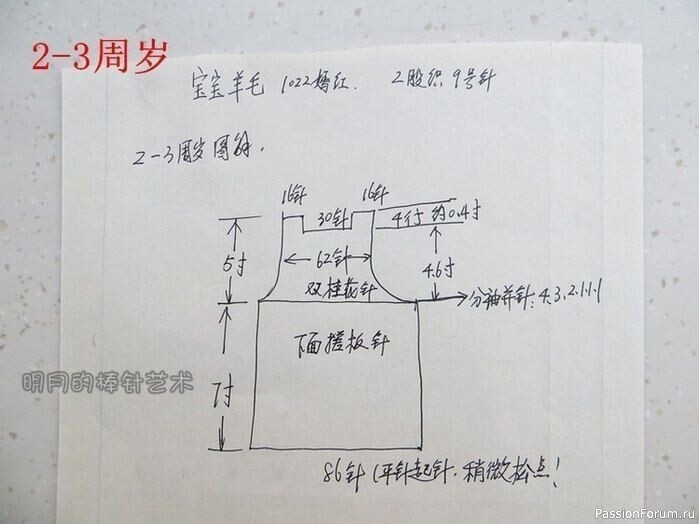 2-3周岁
宝宝羊毛 1022嫣红. 2股织 9号针
2-3周岁图解.
16针 16针
30针 4行 约0.4寸
5寸 62针 4.6寸
双桂花针 分袖并针: 4.3.2.1.1.1
下面搓板针
明月的棒针艺术
7寸
86针 (平针起针. 稍微松点!
PassionForum.ru